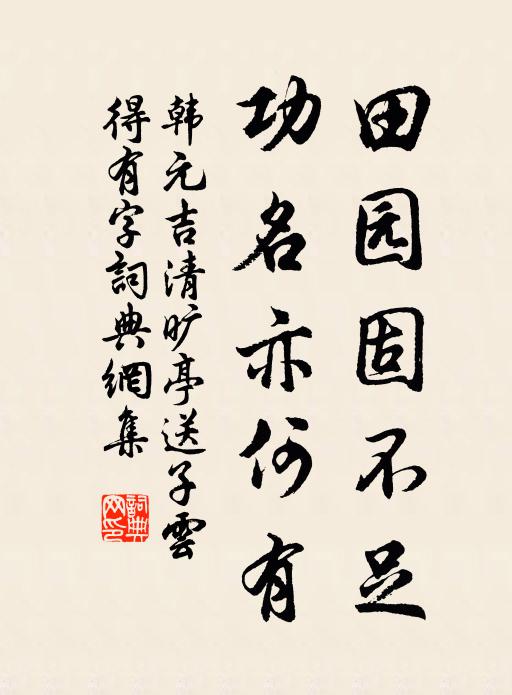 田园固不足
功名亦何有
韩元吉清旷亭送子雲
得有字詞典網集
詞典
网印